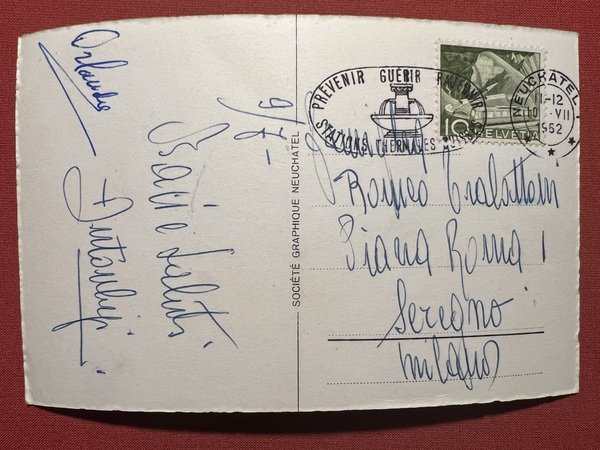 Orlando
9/7-
Baci e saluti
PRÉVENIR GUÉRIR
STATIONS THERMALES
10 HELVETIA
NEUCHATEL 1
11-12
10 -VII
1952
SOCIÉTÉ GRAPHIQUE NEUCHATEL
Romeo Trabattoni
Piazza Roma 1
Seregno
Milano